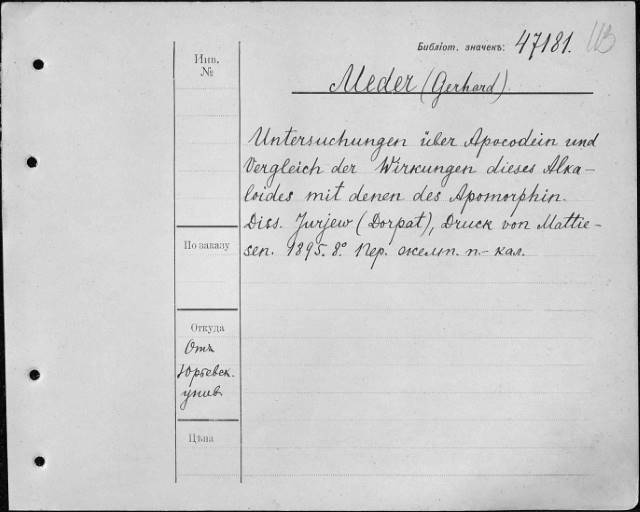 Библіот. значекъ: 47181. 113
Инв. №
Meder (Gerhard).
Untersuchungen über Apocodein und
Vergleich der Wirkungen dieses Alka-
loides mit denen des Apomorphin.
Diss. Jurjew (Dorpat), Druck von Mattie-
sen. 1895. 8.° Пер. желт. п.-кал.
По заказу
Откуда
Отъ
Юрьевск.
унив.
Цѣна